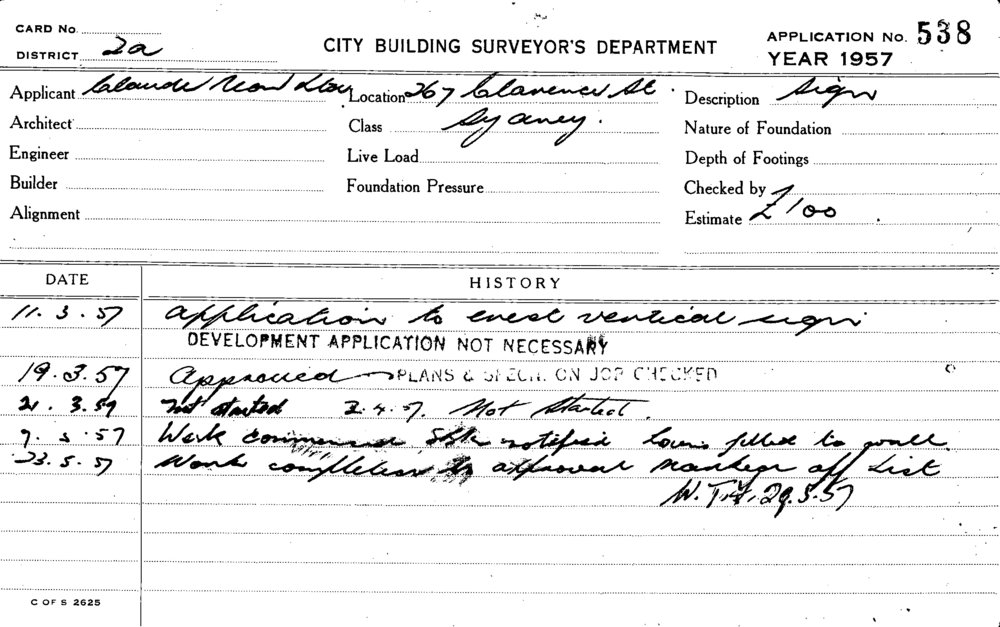 CARD No.
DISTRICT 2a
CITY BUILDING SURVEYOR'S DEPARTMENT
APPLICATION No. 538
YEAR 1957
Applicant Claude Neon
Location 267 Clarence St.
Description Sign
Architect
Class Sydney.
Nature of Foundation
Engineer
Live Load
Depth of Footings
Builder
Foundation Pressure
Checked by
Alignment
Estimate £100
DATE HISTORY
11.3.57 Application to erect vertical sign
DEVELOPMENT APPLICATION NOT NECESSARY
19.3.57 Approved PLANS & SPECN. ON JOB CHECKED
21.3.57 Not started 2.4.57. Not Started.
7.5.57 Work notified to wall
23.5.57 Work approval off list
29.5.57
C OF S 2625